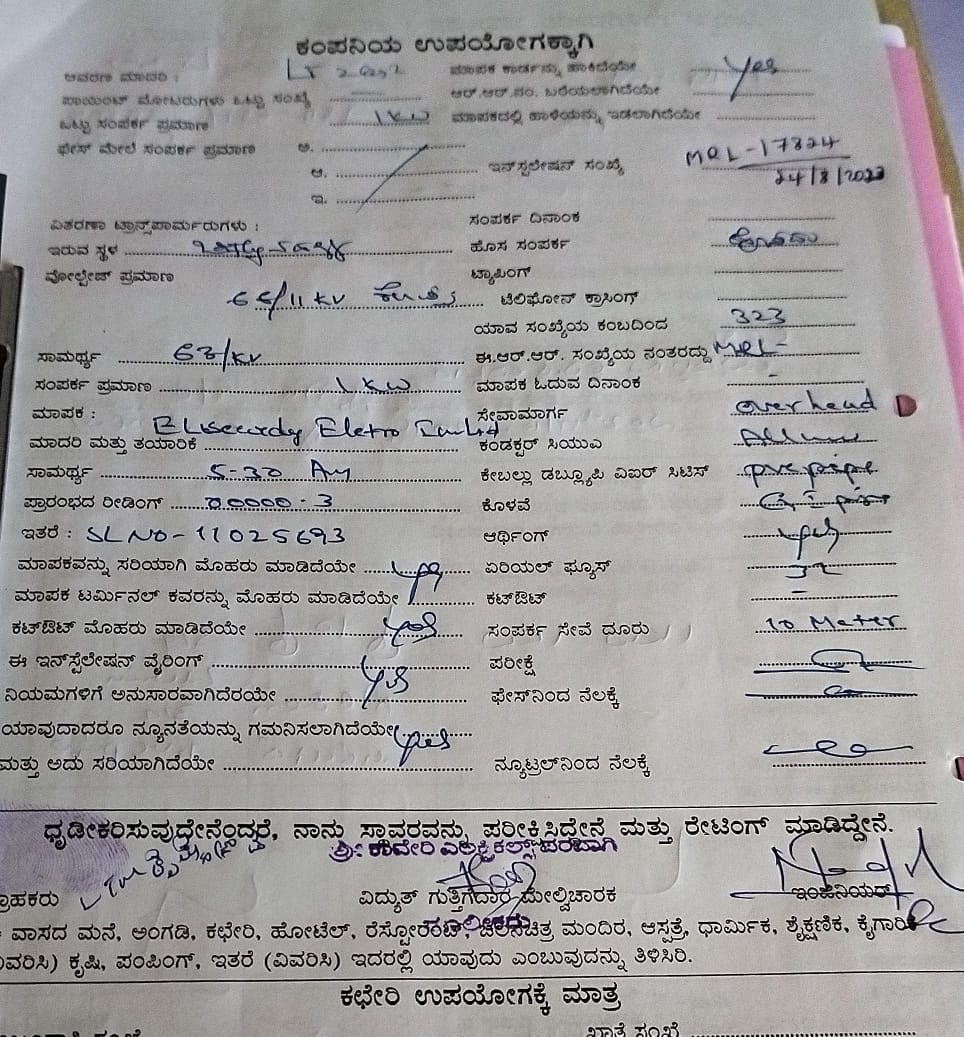 ಕಂಪನಿಯ ಉಪಯೋಗಕ್ಕಾಗಿ
ಆವರಣ ಮಾದರಿ : LT ಮಾಪಕ ಕಾರ್ಡನ್ನು ಹಾಕಿದೆಯೇ Yes
ಪಾಯಿಂಟ್ ಮೋಟರುಗಳು ಒಟ್ಟು ಸಂಖ್ಯೆ ಆರ್.ಆರ್.ನಂ. ಬರೆಯಲಾಗಿದೆಯೇ
ಒಟ್ಟು ಸಂಪರ್ಕ ಪ್ರಮಾಣ 1KW ಮಾಪಕದಲ್ಲಿ ಹಾಳೆಯನ್ನು ಇಡಲಾಗಿದೆಯೇ
ಫೇಸ್ ಮೇಲೆ ಸಂಪರ್ಕ ಪ್ರಮಾಣ ಅ.
ಆ. ಇನ್‌ಸ್ಟಲೇಷನ್ ಸಂಖ್ಯೆ MRL-17824
ಇ. 24/8/2023
ವಿತರಣಾ ಟ್ರಾನ್ಸ್‌ಫಾರ್ಮರುಗಳು : ಸಂಪರ್ಕ ದಿನಾಂಕ
ಇರುವ ಸ್ಥಳ ಹೊಸ ಸಂಪರ್ಕ
ವೋಲ್ಟೇಜ್ ಪ್ರಮಾಣ ಟ್ಯಾಪಿಂಗ್
66/11 KV ಟೆಲಿಫೋನ್ ಕ್ರಾಸಿಂಗ್
ಯಾವ ಸಂಖ್ಯೆಯ ಕಂಬದಿಂದ 323
ಸಾಮರ್ಥ್ಯ 63/KV ಈ.ಆರ್.ಆರ್. ಸಂಖ್ಯೆಯ ನಂತರದ್ದು MRL-
ಸಂಪರ್ಕ ಪ್ರಮಾಣ 1KW ಮಾಪಕ ಓದುವ ದಿನಾಂಕ -
ಮಾಪಕ : ಸೇವಾಮಾರ್ಗ overhead
ಮಾದರಿ ಮತ್ತು ತಯಾರಿಕೆ ಕಂಡಕ್ಟರ್ ಸಿಯುಎ
ಸಾಮರ್ಥ್ಯ 5-30 Am ಕೇಬಲ್ಲು ಡಬ್ಲ್ಯೂಪಿ ಎಐರ್ ಸಿಟಿಸ್ pvc pipe
ಪ್ರಾರಂಭದ ರೀಡಿಂಗ್ 00000-3 ಕೊಳವೆ
ಇತರೆ : SL NO-11025693 ಆರ್ಥಿಂಗ್ yes
ಮಾಪಕವನ್ನು ಸರಿಯಾಗಿ ಮೊಹರು ಮಾಡಿದೆಯೇ yes ಏರಿಯಲ್ ಫ್ಯೂಸ್ 32
ಮಾಪಕ ಟರ್ಮಿನಲ್ ಕವರನ್ನು ಮೊಹರು ಮಾಡಿದೆಯೇ ಕಟ್‌ಔಟ್ -
ಕಟ್‌ಔಟ್ ಮೊಹರು ಮಾಡಿದೆಯೇ yes ಸಂಪರ್ಕ ಸೇವೆ ಧೂರು 10 Meter
ಈ ಇನ್‌ಸ್ಪೆಲೇಷನ್ ವೈರಿಂಗ್ ಪರೀಕ್ಷೆ
ನಿಯಮಗಳಿಗೆ ಅನುಸಾರವಾಗಿದೆರಯೇ yes ಫೇಸ್‌ನಿಂದ ನೆಲಕ್ಕೆ
ಯಾವುದಾದರೂ ನ್ಯೂನತೆಯನ್ನು ಗಮನಿಸಲಾಗಿದೆಯೇ yes
ಮತ್ತು ಅದು ಸರಿಯಾಗಿದೆಯೇ ನ್ಯೂಟ್ರಲ್‌ನಿಂದ ನೆಲಕ್ಕೆ
ಧೃಡೀಕರಿಸುವುದೇನೆಂದ್ದರೆ, ನಾನು ಸ್ಥಾವರವನ್ನು ಪರೀಕ್ಷಿಸಿದ್ದೇನೆ ಮತ್ತು ರೇಟಿಂಗ್ ಮಾಡಿದ್ದೇನೆ.
ಶ್ರೀ ಕಾವೇರಿ ಎಲೆಕ್ಟ್ರಿಕಲ್ಸ್ ಪರವಾಗಿ
ಗ್ರಾಹಕರು ವಿದ್ಯುತ್ ಗುತ್ತಿಗೆದಾರ ಮೇಲ್ವಿಚಾರಕ ಇಂಜಿನಿಯರ್
ವಾಸದ ಮನೆ, ಅಂಗಡಿ, ಕಛೇರಿ, ಹೋಟೆಲ್, ರೆಸ್ಟೋರೆಂಟ್, ಚಲನಚಿತ್ರ ಮಂದಿರ, ಆಸ್ಪತ್ರೆ, ಧಾರ್ಮಿಕ, ಶೈಕ್ಷಣಿಕ, ಕೈಗಾರಿಕೆ
(ವಿವರಿಸಿ) ಕೃಷಿ, ಪಂಪಿಂಗ್, ಇತರೆ (ವಿವರಿಸಿ) ಇದರಲ್ಲಿ ಯಾವುದು ಎಂಬುವುದನ್ನು ತಿಳಿಸಿರಿ.
ಕಛೇರಿ ಉಪಯೋಗಕ್ಕೆ ಮಾತ್ರ
ಖಾತೆ ಸಂಖ್ಯೆ